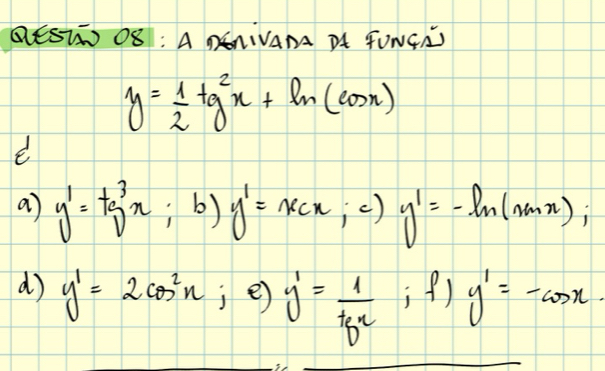 QUESTÃO 08: A DERIVADA DA FUNÇÃO
y = 1/2 tg²x + ln(cosx)
é
a) y' = tg³x ; b) y' = secx ; c) y' = -ln(senx) ;
d) y' = 2cos²x ; e) y' = 1/tgx ; f) y' = -cosx.